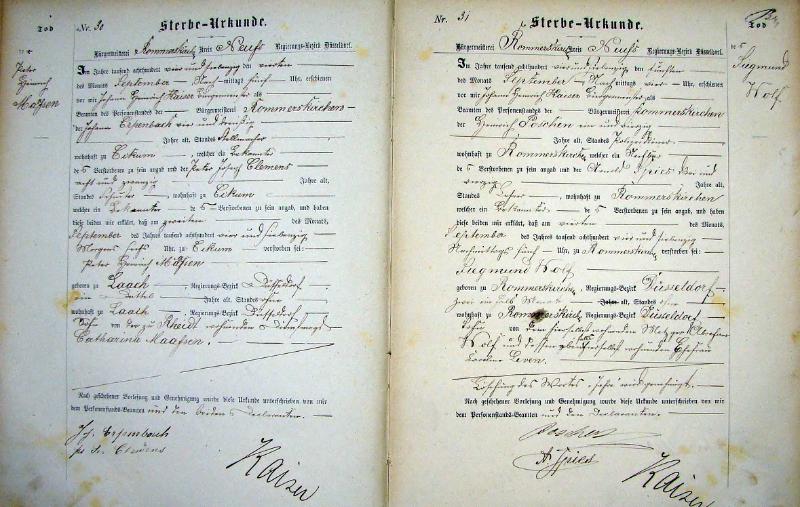 Tod
Peter
Heinrich
Maaßen
Nr. 30
Sterbe-Urkunde.
Bürgermeisterei Rommerskirch Kreis Neuß Regierungs-Bezirk Düsseldorf.
Im Jahre tausend achthundert vier und siebenzig den vierten
des Monats September Nachmittags fünf Uhr, erschienen
vor mir Johann Heinrich Kaiser Bürgermeister als
Beamten des Personenstandes der Bürgermeisterei Rommerskirchen
der Johann Espenbach vier und dreißig
Jahre alt, Standes
wohnhaft zu Eckum, welcher ein Bekannter
des Verstorbenen zu sein angab und der Peter Josef Clemens
acht und zwanzig Jahre alt,
Standes wohnhaft zu Eckum
welcher ein Bekannter des Verstorbenen zu sein angab, und haben
diese beiden mir erklärt, daß am zweiten des Monats
September des Jahres tausend achthundert vier und siebenzig
Morgens sechs Uhr, zu Eckum verstorben sei:
Peter Heinrich Maaßen
geboren zu Laach, Regierungs-Bezirk Düsseldorf
ein Jahre alt, Standes ohne
wohnhaft zu Laach Regierungs-Bezirk Düsseldorf
Sohn von der zu Rheidt wohnenden Dienstmagd
Catharina Maaßen.
Nach geschehener Vorlesung und Genehmigung wurde diese Urkunde unterschrieben von mir
dem Personenstands-Beamten und den beiden Declaranten.
Joh. Espenbach
Clemens
Kaiser
Nr. 31
Sterbe-Urkunde.
Tod
des
Sugmund
Wolf.
Bürgermeisterei Rommerskirch Kreis Neuß Regierungs-Bezirk Düsseldorf.
Im Jahre tausend achthundert vier und siebenzig den fünften
des Monats September Nachmittags vier Uhr, erschienen
vor mir Johann Heinrich Kaiser Bürgermeister als
Beamten des Personenstandes der Bürgermeisterei Rommerskirchen
der Heinrich Poschen ein und vierzig
Jahre alt, Standes Polizeidiener
wohnhaft zu Rommerskirch welcher ein Nachbar
des Verstorbenen zu sein angab und der Arnold Spies drei und
vierzig Jahre alt,
Standes Lehrer, wohnhaft zu Rommerskirchen
welcher ein Bekannter des Verstorbenen zu sein angab, und haben
diese beiden mir erklärt, daß am vierten des Monats
September des Jahres tausend achthundert vier und siebenzig
Nachmittags fünf Uhr, zu Rommerskirch verstorben sei:
Sugmund Wolf
geboren zu Rommerskirch, Regierungs-Bezirk Düsseldorf
zwei ein halb Monat Jahre alt, Standes ohne
wohnhaft zu Rommerskirch, Regierungs-Bezirk Düsseldorf,
Sohn von dem hierselbst wohnenden Metzger Abraham
Wolf und dessen ebenfalls hierselbst wohnenden Ehefrau
Leven.
Löschung des Wortes „Jahre“ wird genehmigt.
Nach geschehener Vorlesung und Genehmigung wurde diese Urkunde unterschrieben von mir
dem Personenstands-Beamten und den Declaranten.
Poschen
A. Spies
Kaiser